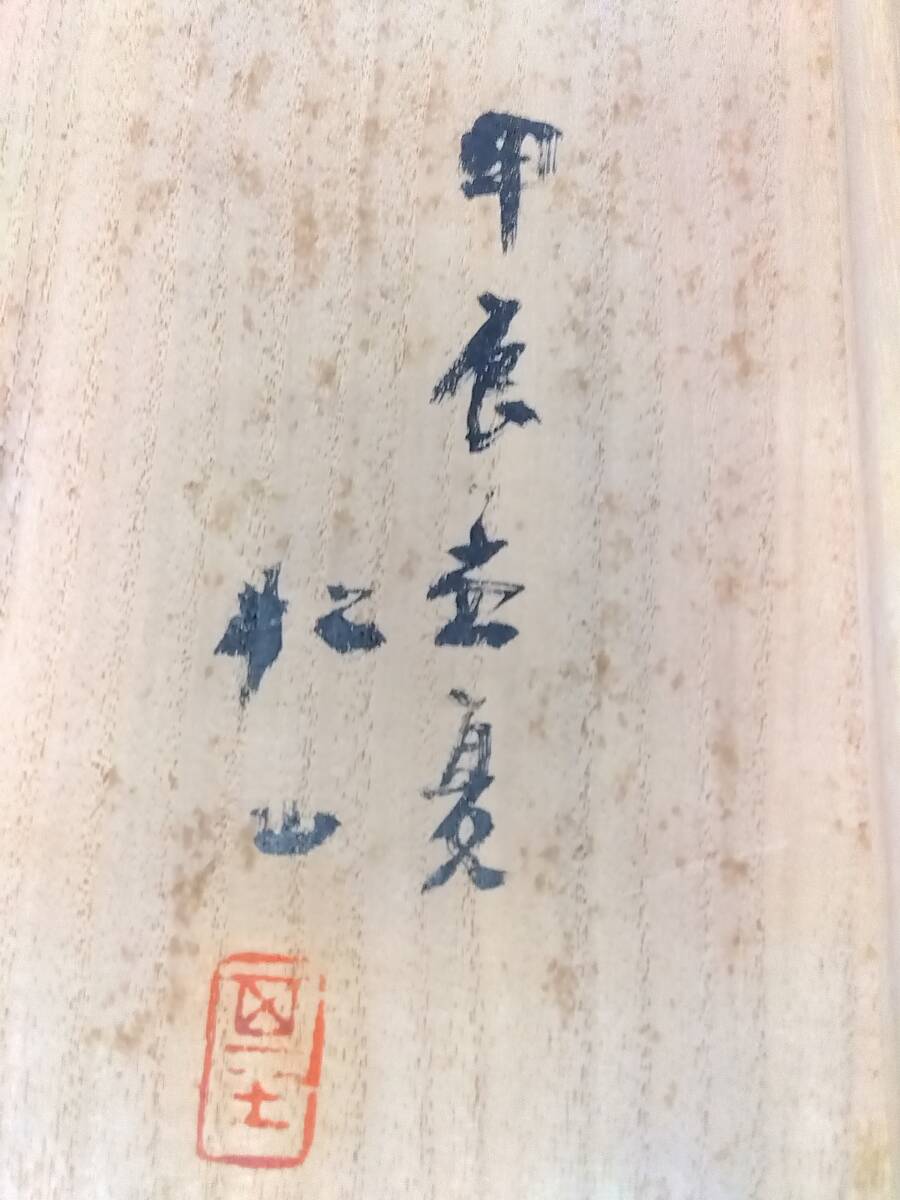 甲辰孟夏
松山